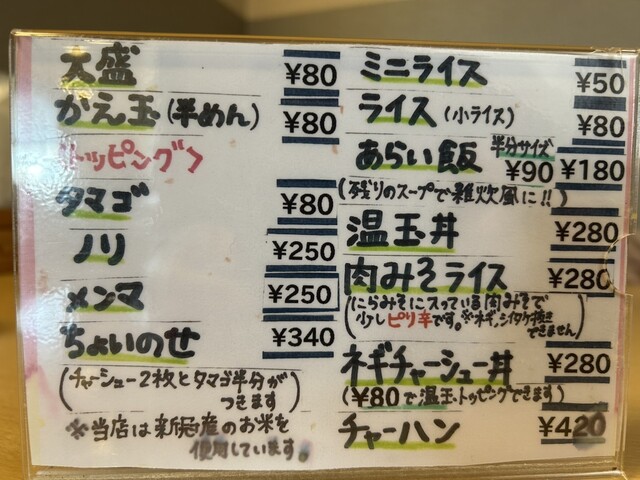 大盛 ¥80
かえ玉(半めん) ¥80
トッピング〉
タマゴ ¥80
ノリ ¥250
メンマ ¥250
ちょいのせ ¥340
(チャーシュー2枚とタマゴ半分が
つきます)
※当店は新冠産のお米を
使用しています。
ミニライス ¥50
ライス(小ライス) ¥80
あらい飯 半分サイズ ¥90 ¥180
(残りのスープで雑炊風に!!)
温玉丼 ¥280
肉みそライス ¥280
(にらみそに入っている肉みそで
少しピリ辛です。※ネギ、シイタケ抜き
できません)
ネギチャーシュー丼 ¥280
(¥80で温玉トッピングできます)
チャーハン ¥420